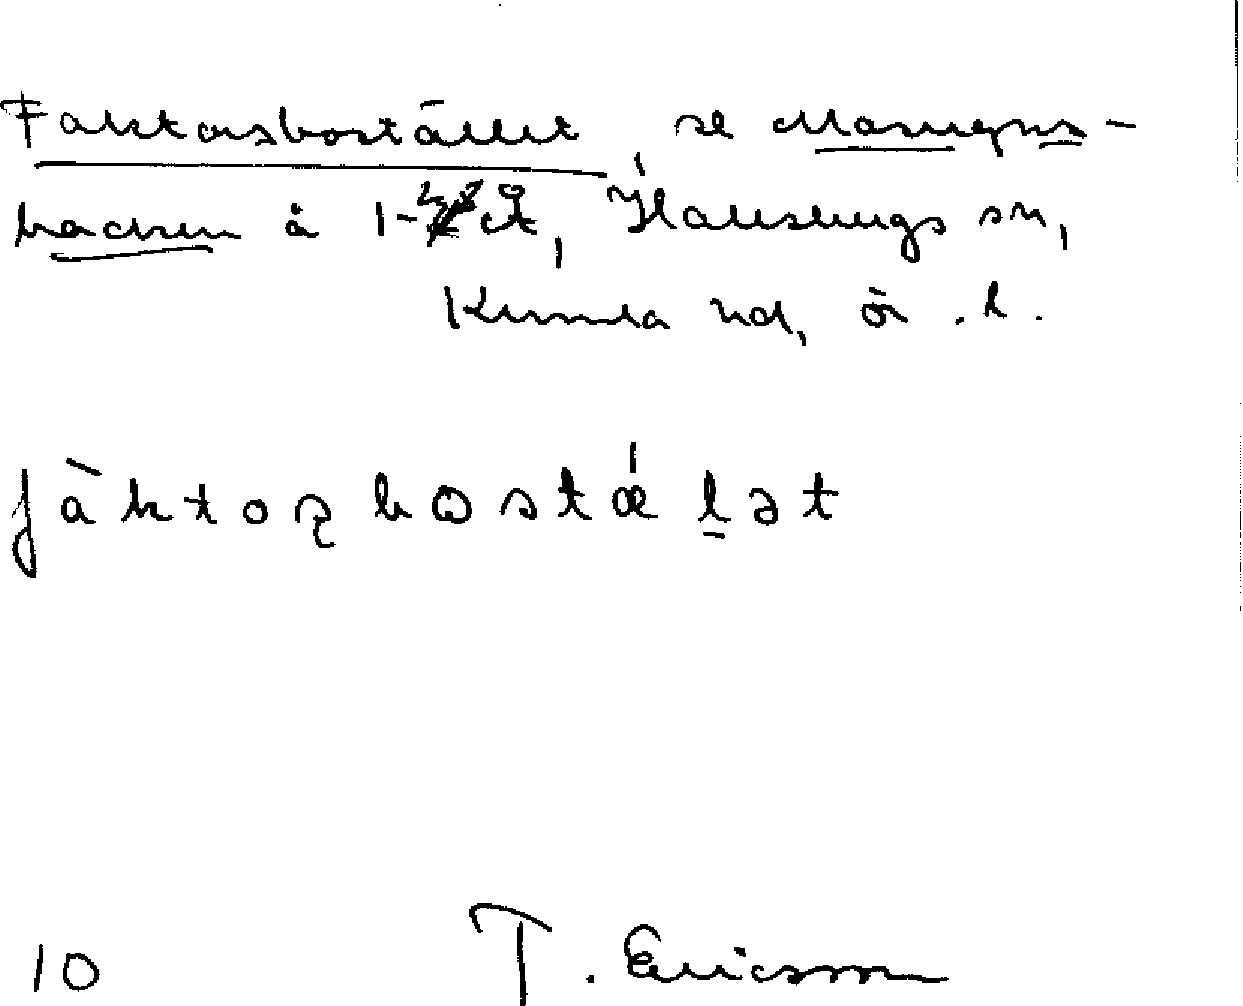 Faktorsbostället, se Masugns-
backen å 1-48 Å, Hallsbergs sn,
Kumla hd, Ör. l.
fàktoʂbostǽl̠ət
10 T. Ericsson